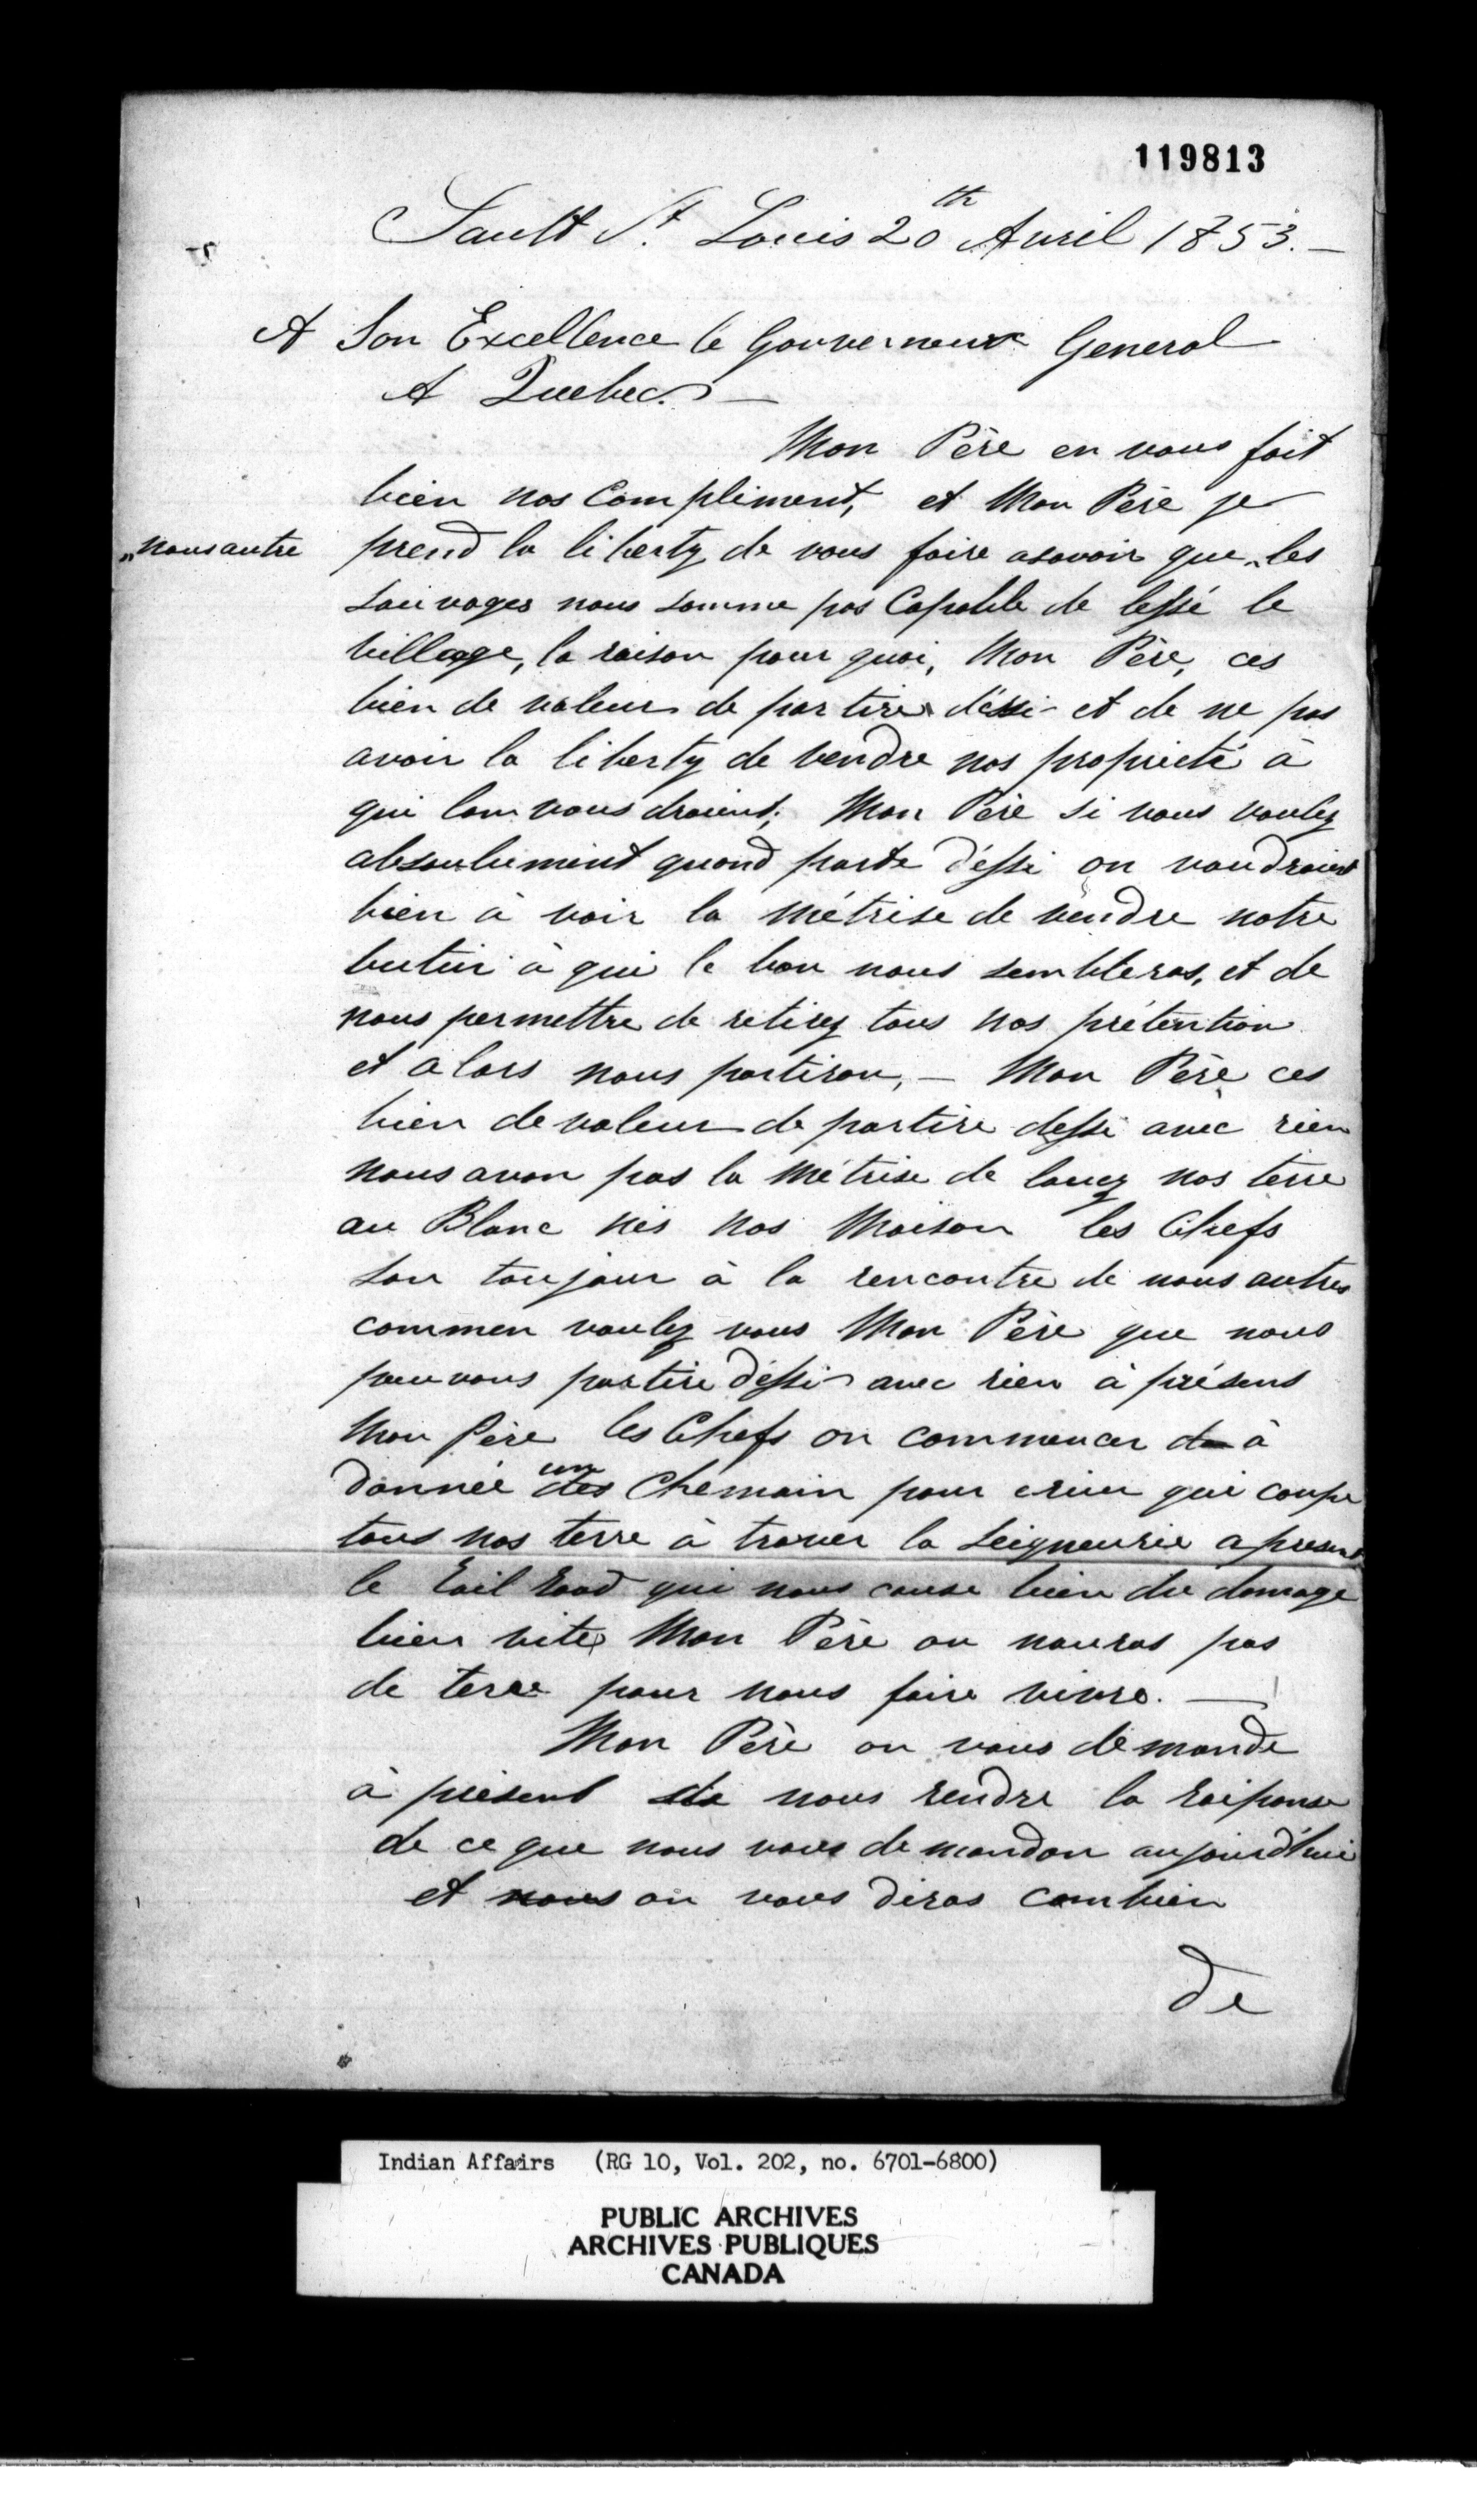 119813
Sault St. Louis 20th Avril 1853.—
A Son Excellence le Gouverneur General
A Quebec. —
Mon Père en vous fait
bien nos Compliment, et Mon Père je
"nous autre
prend la liberty de vous faire asavoir que " les
Sauvages nous somme pas Capable de lessé le
village, la raison pour quoi, Mon Père, ces
bien de valeur de partire d'éssi et de ne pas
avoir la liberty de vendre nos proprieté à
qui lon vous draient; Mon Père si vous voulez
absoulument quond parte d'éssi on voudraient
bien à voir la métrise de vendre notre
butin à qui le bon nous sembleras, et de
nous permettre de retirez tous nos prétention
et alors nous partiron, — Mon Père ces
bien de valeur de partire dessi avèc rien
nous avon pas la métrise de louez nos terre
au Blanc nis nos Maison les Chefs
son toujour à la rencontre de nous autres
commen voulez vous Mon Père que nous
pouvons partire d'éssi avec rien à présens
Mon Père les Chefs on commencer de à
donnée des un Chemain pour crier qui coupe
tous nos terre à traver la Seigneurie a present
le Rail Road qui nous cause bien du domage
bien vite, Mon Père on nauras pas
de terre pour nous faire vivre. —
Mon Père on vous demande
à présent de nous rendre la raiponse
de ce que nous vous demandon aujourd'hui
et nous on vous diras combien
de
Indian Affairs (RG 10, Vol. 202, no. 6701-6800)
PUBLIC ARCHIVES
ARCHIVES PUBLIQUES
CANADA